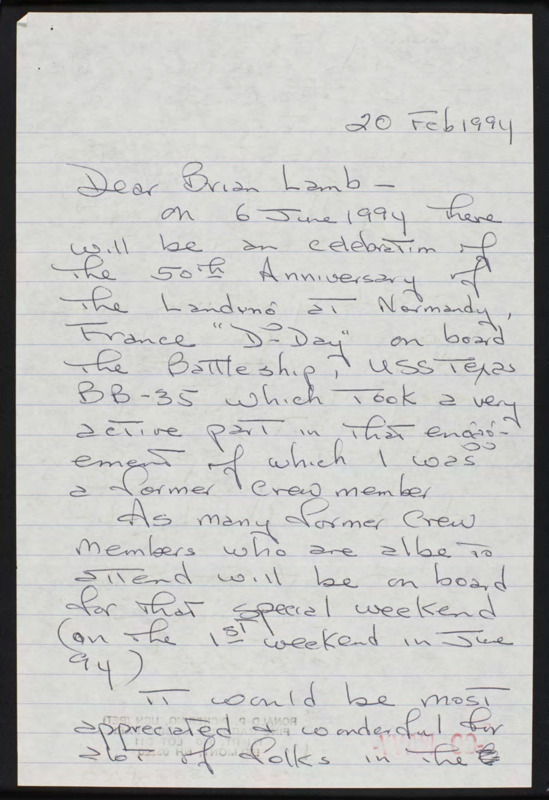 20 Feb 1994
Dear Brian Lamb -
on 6 June 1994 there
will be an celebration of
the 50th Anniversary of
the Landing at Normandy,
France "D-Day" on board
the Battleship, USS Texas
BB-35 which took a very
active part in that engag-
ement of which I was
a former crew member
As many former crew
members who are albe to
attend will be on board
for that special weekend
(on the 1st weekend in June
94)
it would be most
appreciated & wonderful for
alot of folks in the